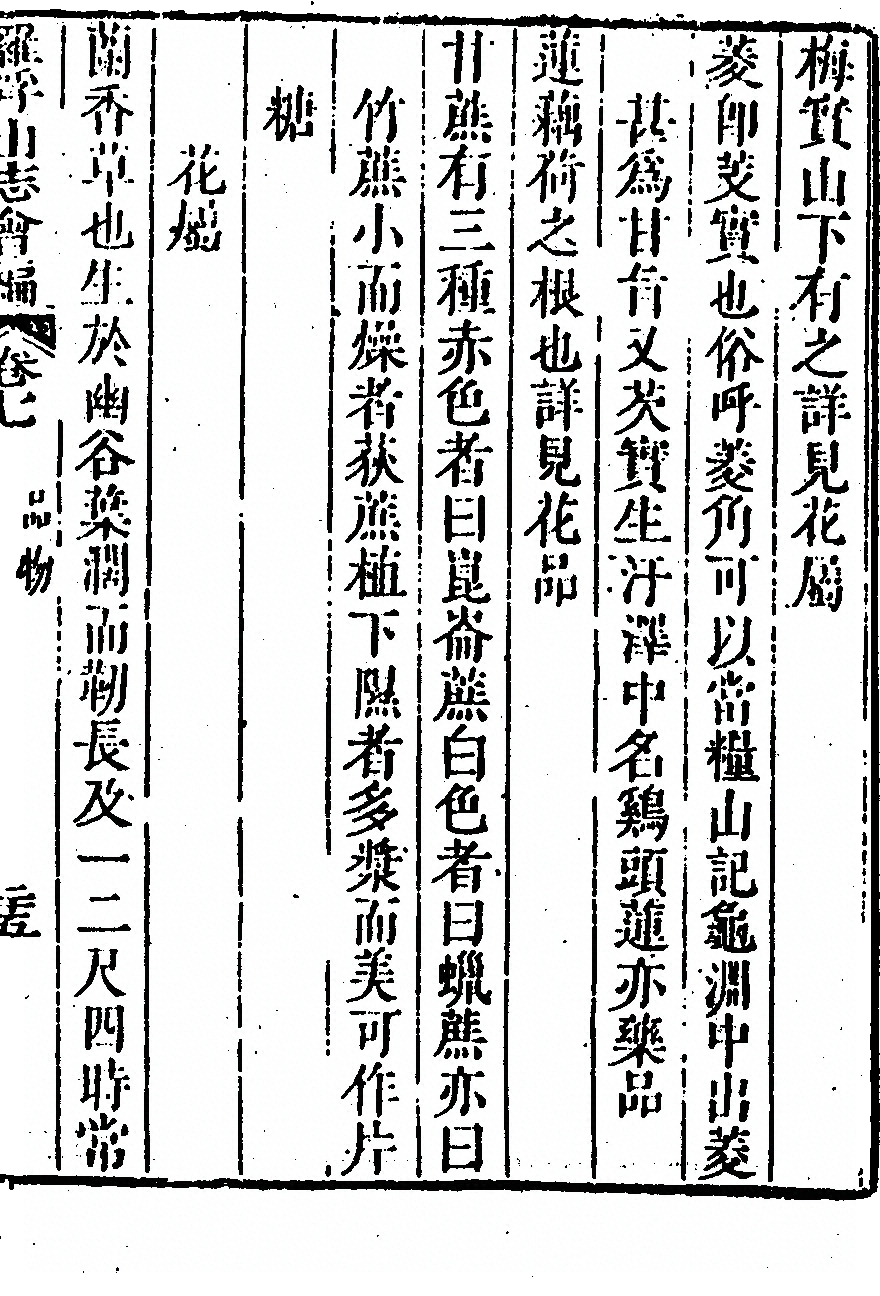 梅實山下有之詳見花屬
菱卽芰實也俗呼菱角可以當糧山記龜淵中出菱
甚爲甘旨又芡實生汙澤中名鷄頭蓮亦藥品
蓮藕荷之根也詳見花品
甘蔗有三種赤色者曰崑崙蔗白色者曰蠟蔗亦曰
竹蔗小而燥者荻蔗植下隰者多漿而美可作片
糖
花屬
蘭香草也生於幽谷葉濶而韌長及一二尺四時常
羅浮山志會編 卷七 品物